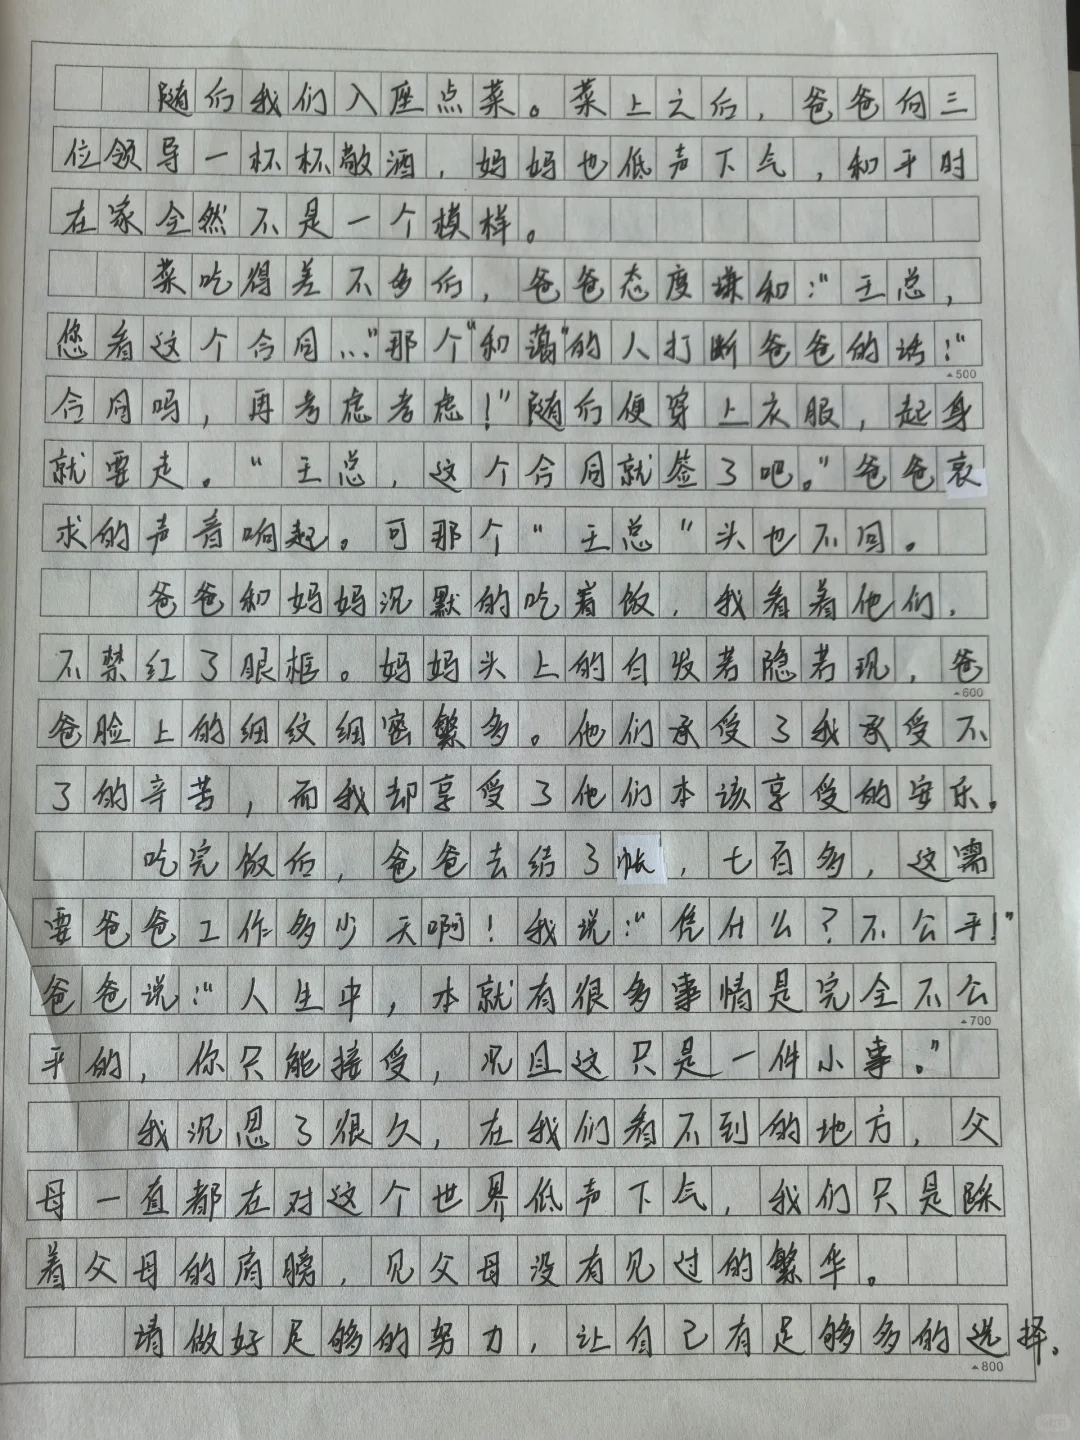 随后我们入座点菜。菜上之后，爸爸向三
位领导一杯杯敬酒，妈妈也低声下气，和平时
在家全然不是一个模样。
菜吃得差不多后，爸爸态度谦和:“王总，
您看这个合同…”那个“和蔼”的人打断爸爸的话:“
▲500
合同吗，再考虑考虑!”随后便穿上衣服，起身
就要走。“王总，这个合同就签了吧。”爸爸哀
求的声音响起。可那个“王总”头也不回。
爸爸和妈妈沉默的吃着饭，我看着他们，
不禁红了眼框。妈妈头上的白发若隐若现，爸
▲600
爸脸上的细纹细密繁多。他们承受了我承受不
了的辛苦，而我却享受了他们本该享受的安乐。
吃完饭后，爸爸去结了帐，七百多，这需
要爸爸工作多少天啊!我说:“凭什么?不公平!”
爸爸说:“人生中，本就有很多事情是完全不公
▲700
平的，你只能接受，况且这只是一件小事。”
我沉思了很久，在我们看不到的地方，父
母一直都在对这个世界低声下气，我们只是踩
着父母的肩膀，见父母没有见过的繁华。
请做好足够的努力，让自己有足够多的选择。
▲800